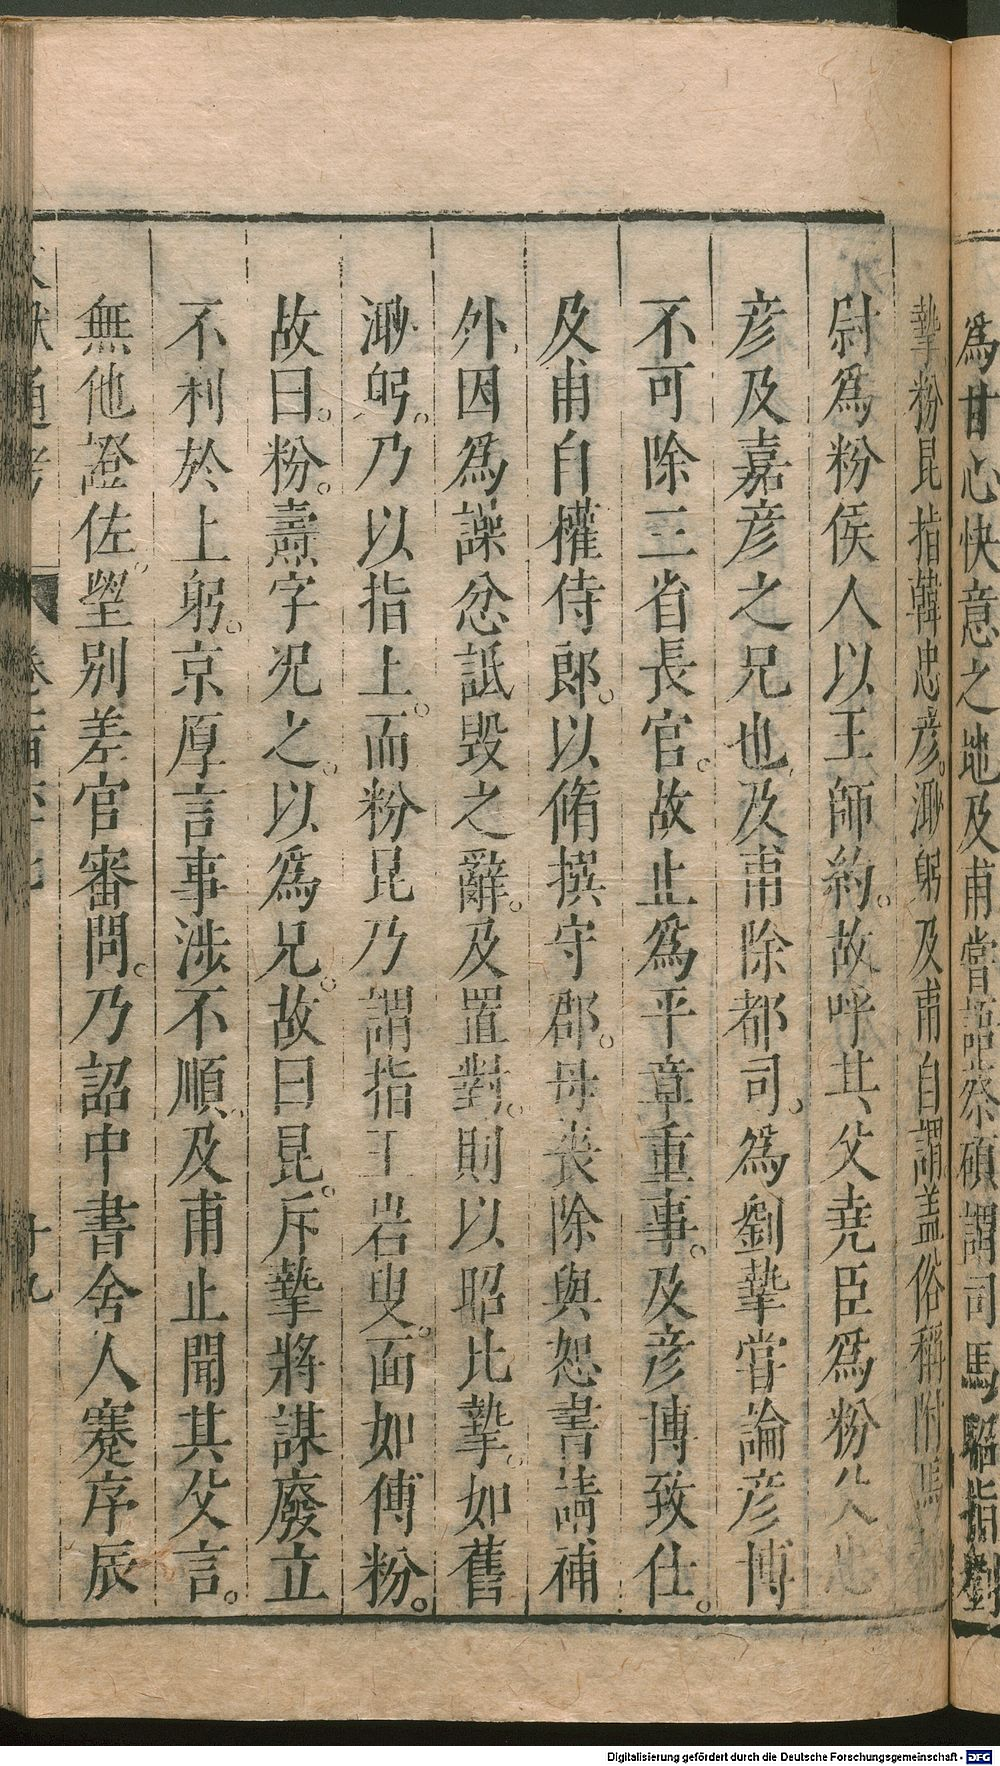 爲甘心快意之地及甫嘗語蔡碩謂司馬昭指劉
摯粉昆指韓忠彦。㴱躬及甫自謂盖俗稱附馬都
尉爲粉侯人以王師約。故呼其父堯臣爲粉父忠
彦及嘉彦之兄也及甫除都司。爲劉摯嘗論彦博
不可除三省長官。故止爲平章重事。及彦博致仕。
及甫自權侍郎。以脩撰守郡。母丧除與恕書請補
外因爲譟忿詆毀之辭。及置對。則以昭比摯。如舊
㴱躬。乃以指上。而粉昆乃謂指王岩叟。面如傅粉。
故曰。粉。燾字况之。以爲兄。故曰昆。斥摯將謀廢立
不利於上躬。京厚言事涉不順及甫止聞其父言。
無他證佐望别差官審問。乃詔中書舍人蹇序辰
文獻通考
十九
Digitalisierung gefördert durch die Deutsche Forschungsgemeinschaft - DFG